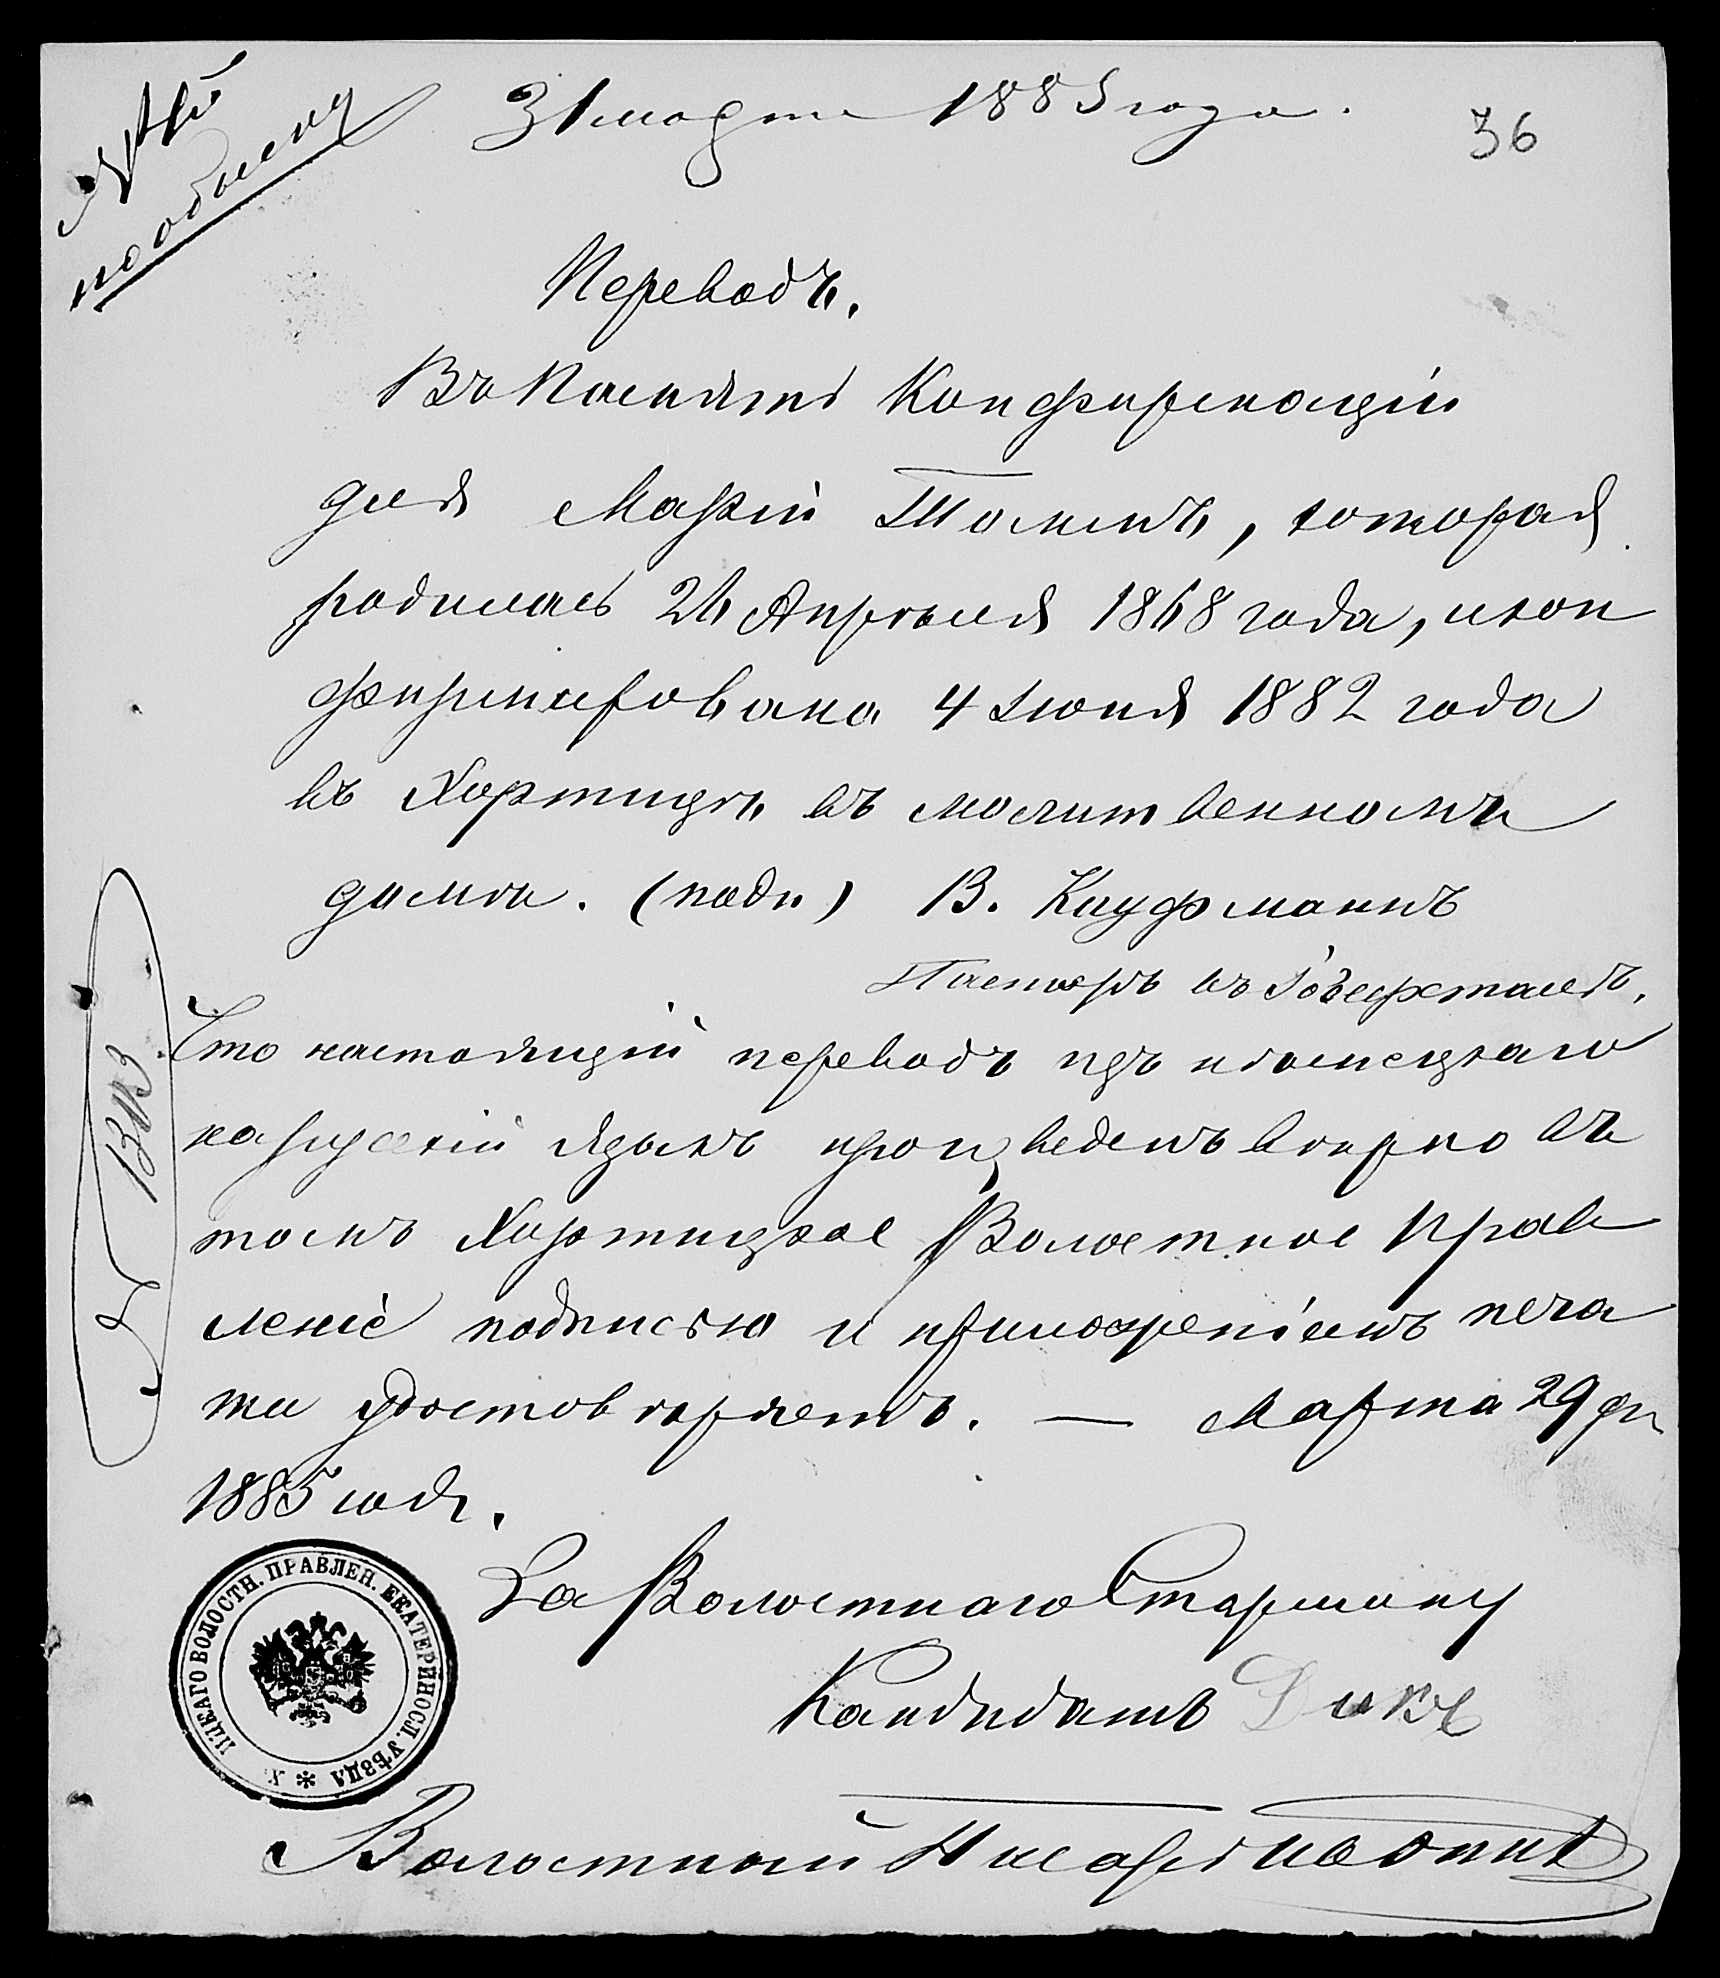 31 марта 1885 года.
36
Переводъ.
Въ Память Конфирмаціи
для Маріи Томмъ, которая
родилась 26 Апрѣля 1868 года, и кон
фирмирована 4 Іюня 1882 года
въ Хортицѣ въ молитвенномъ
домѣ. (подп) В. Кауфманнъ
Пасторъ въ
Что настоящій переводъ изъ нѣмецкаго
на русскій языкъ произведенъ вѣрно въ
томъ Хортицкое Волостное Прав
леніе подписью и приложеніемъ печа
ти удостовѣряетъ. — Марта 29 дн
1885 года.
За Волостнаго Старшину
Кандидатъ Дикъ
Волостный Писарь
ИЦКАГО ВОЛОСТН. ПРАВЛЕН. ЕКАТЕРИНОСЛ. УѢЗДА * Х